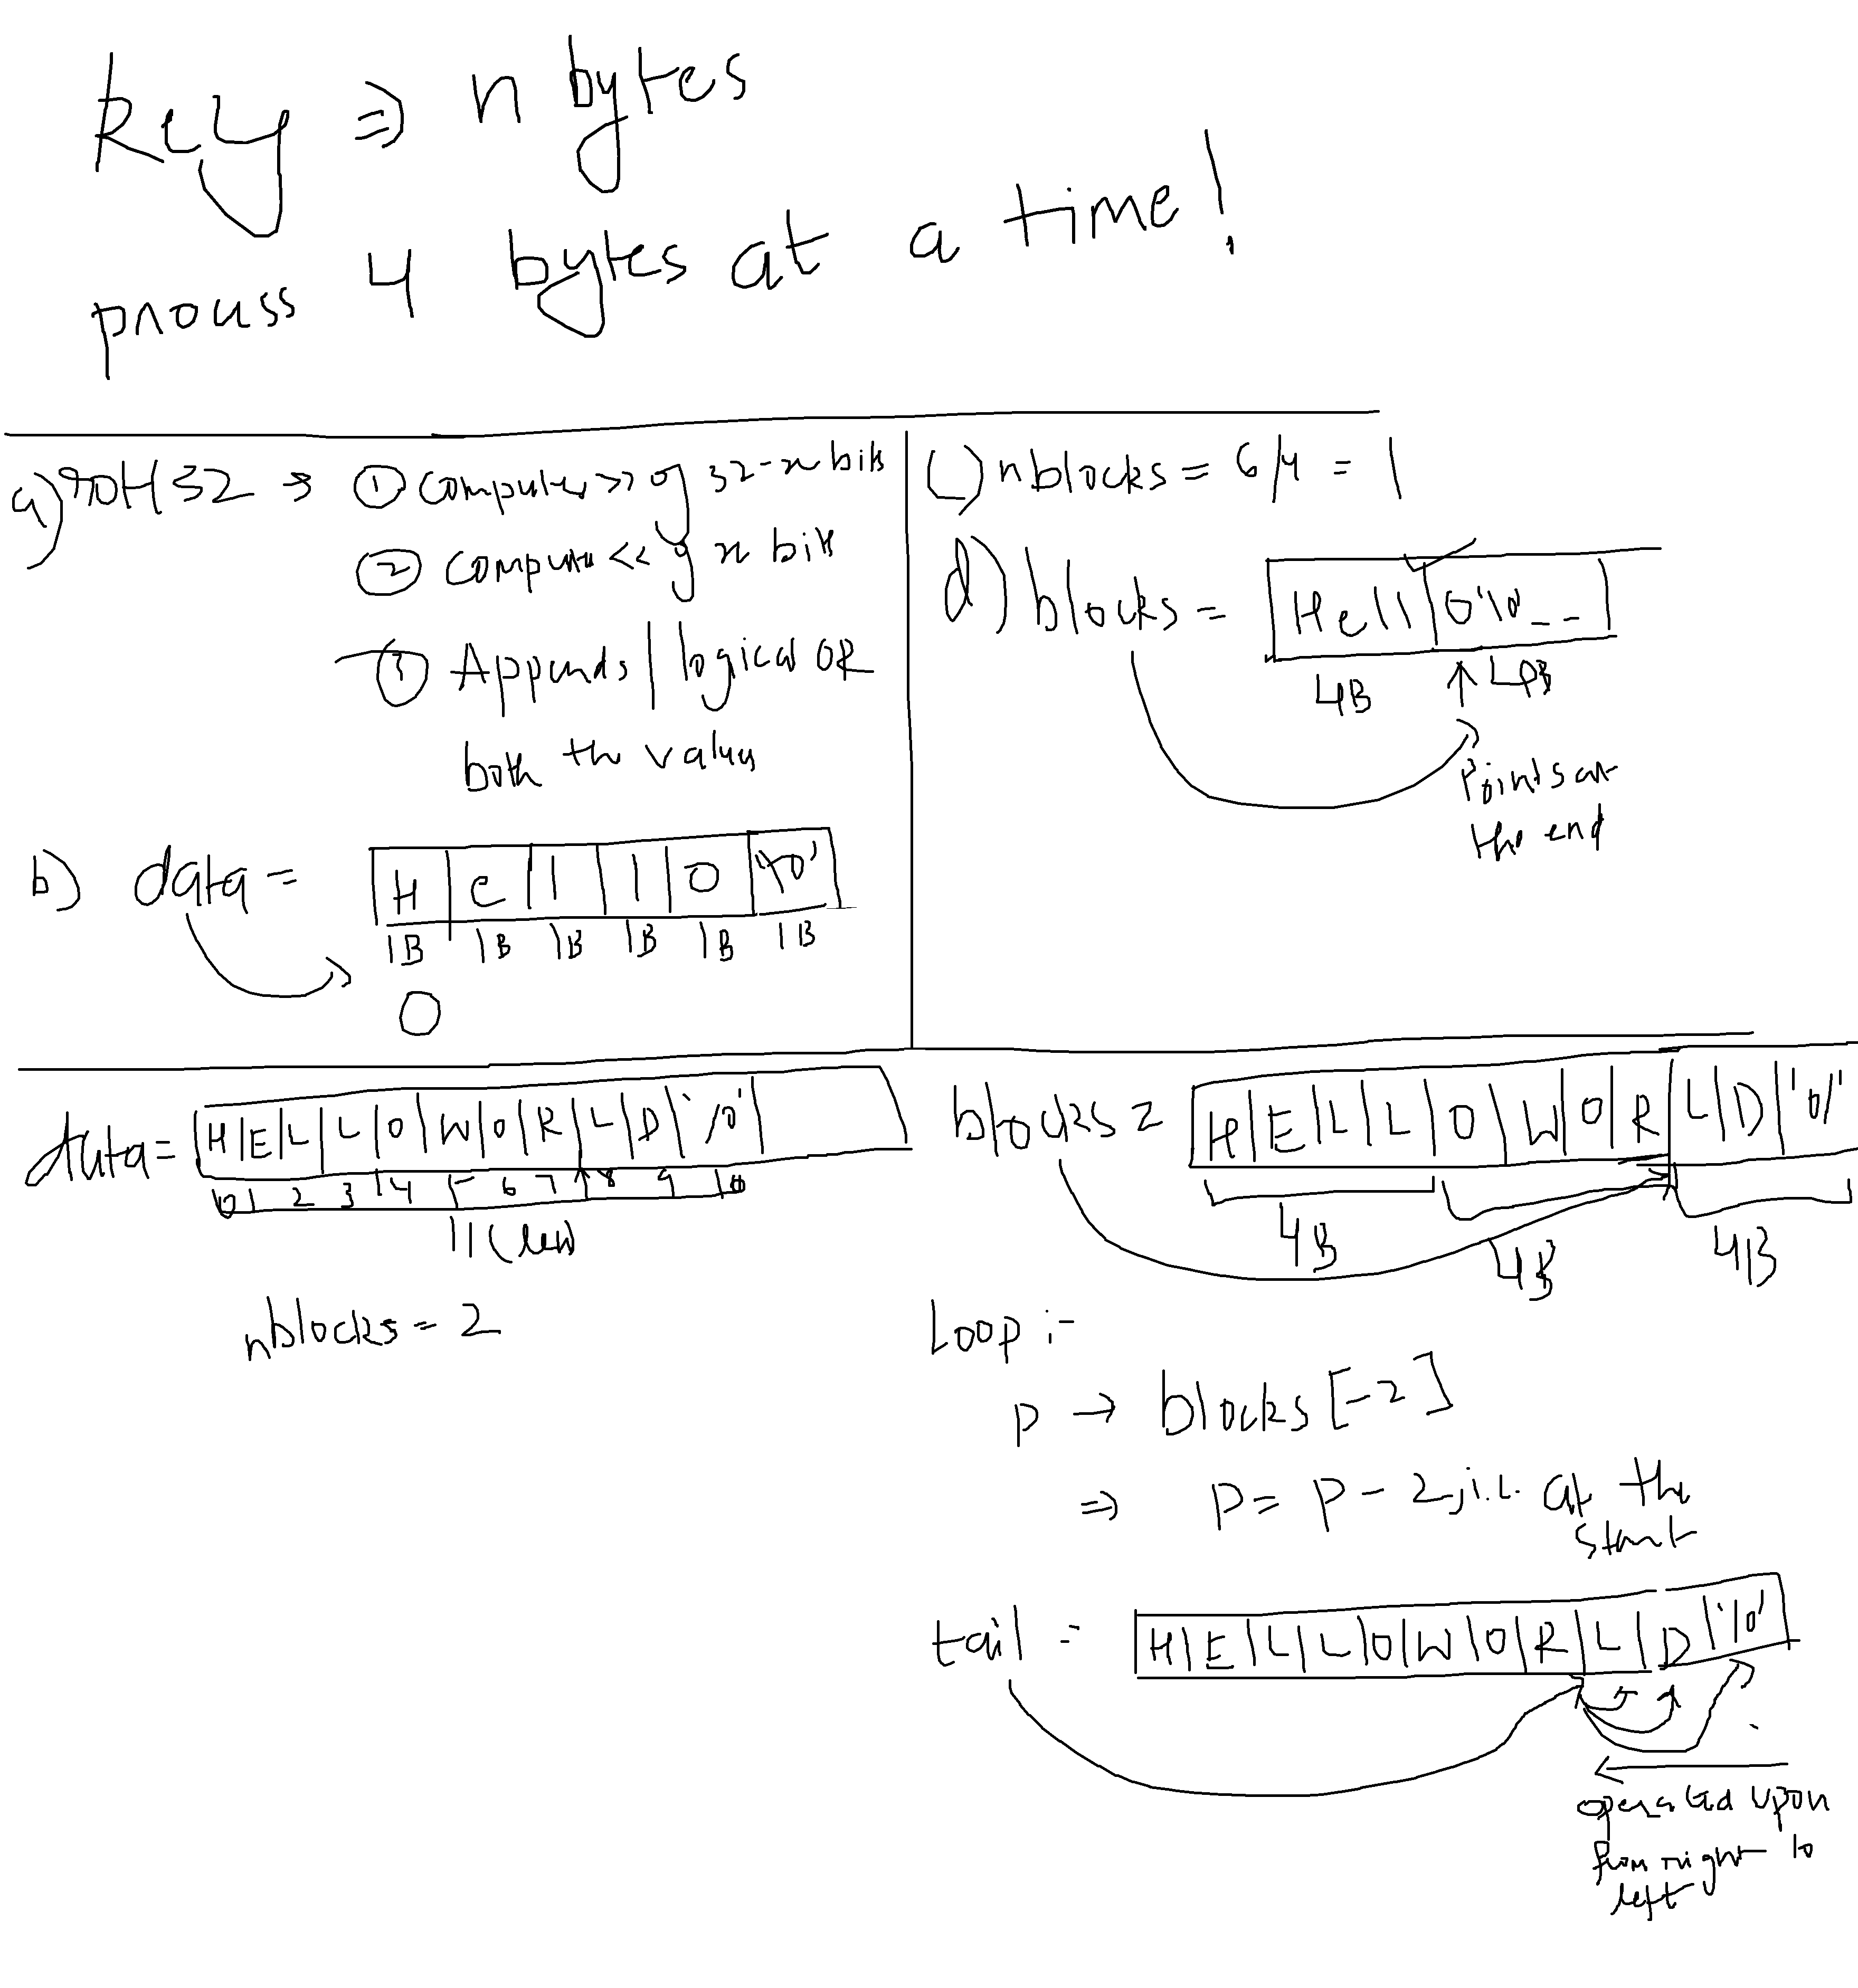 key ⇒ n bytes
process 4 bytes at a time!
a) rotl32 → ① computes >> of 32-x bits
② computes << of x bits
③ Appends | logical OR
both the values
b) data =
H | e | l | l | o | '\0'
1B 1B 1B 1B 1B 1B
0
c) nblocks = 6/4 = 1
d) blocks =
Hell | o'\0' _ _
4B 4B
Points at
the end
data = H | E | L | L | O | W | O | R | L | D | '\0'
0 1 2 3 4 5 6 7 8 9 10
11 (len)
nblocks = 2
blocks = H | E | L | L | O | W | O | R | L | D | '\0'
4B 4B 4B
Loop :-
p → blocks [-2]
⇒ p = p - 2, i.e. at the
start
tail = H | E | L | L | O | W | O | R | L | D | '\0'
operated upon
from right to
left